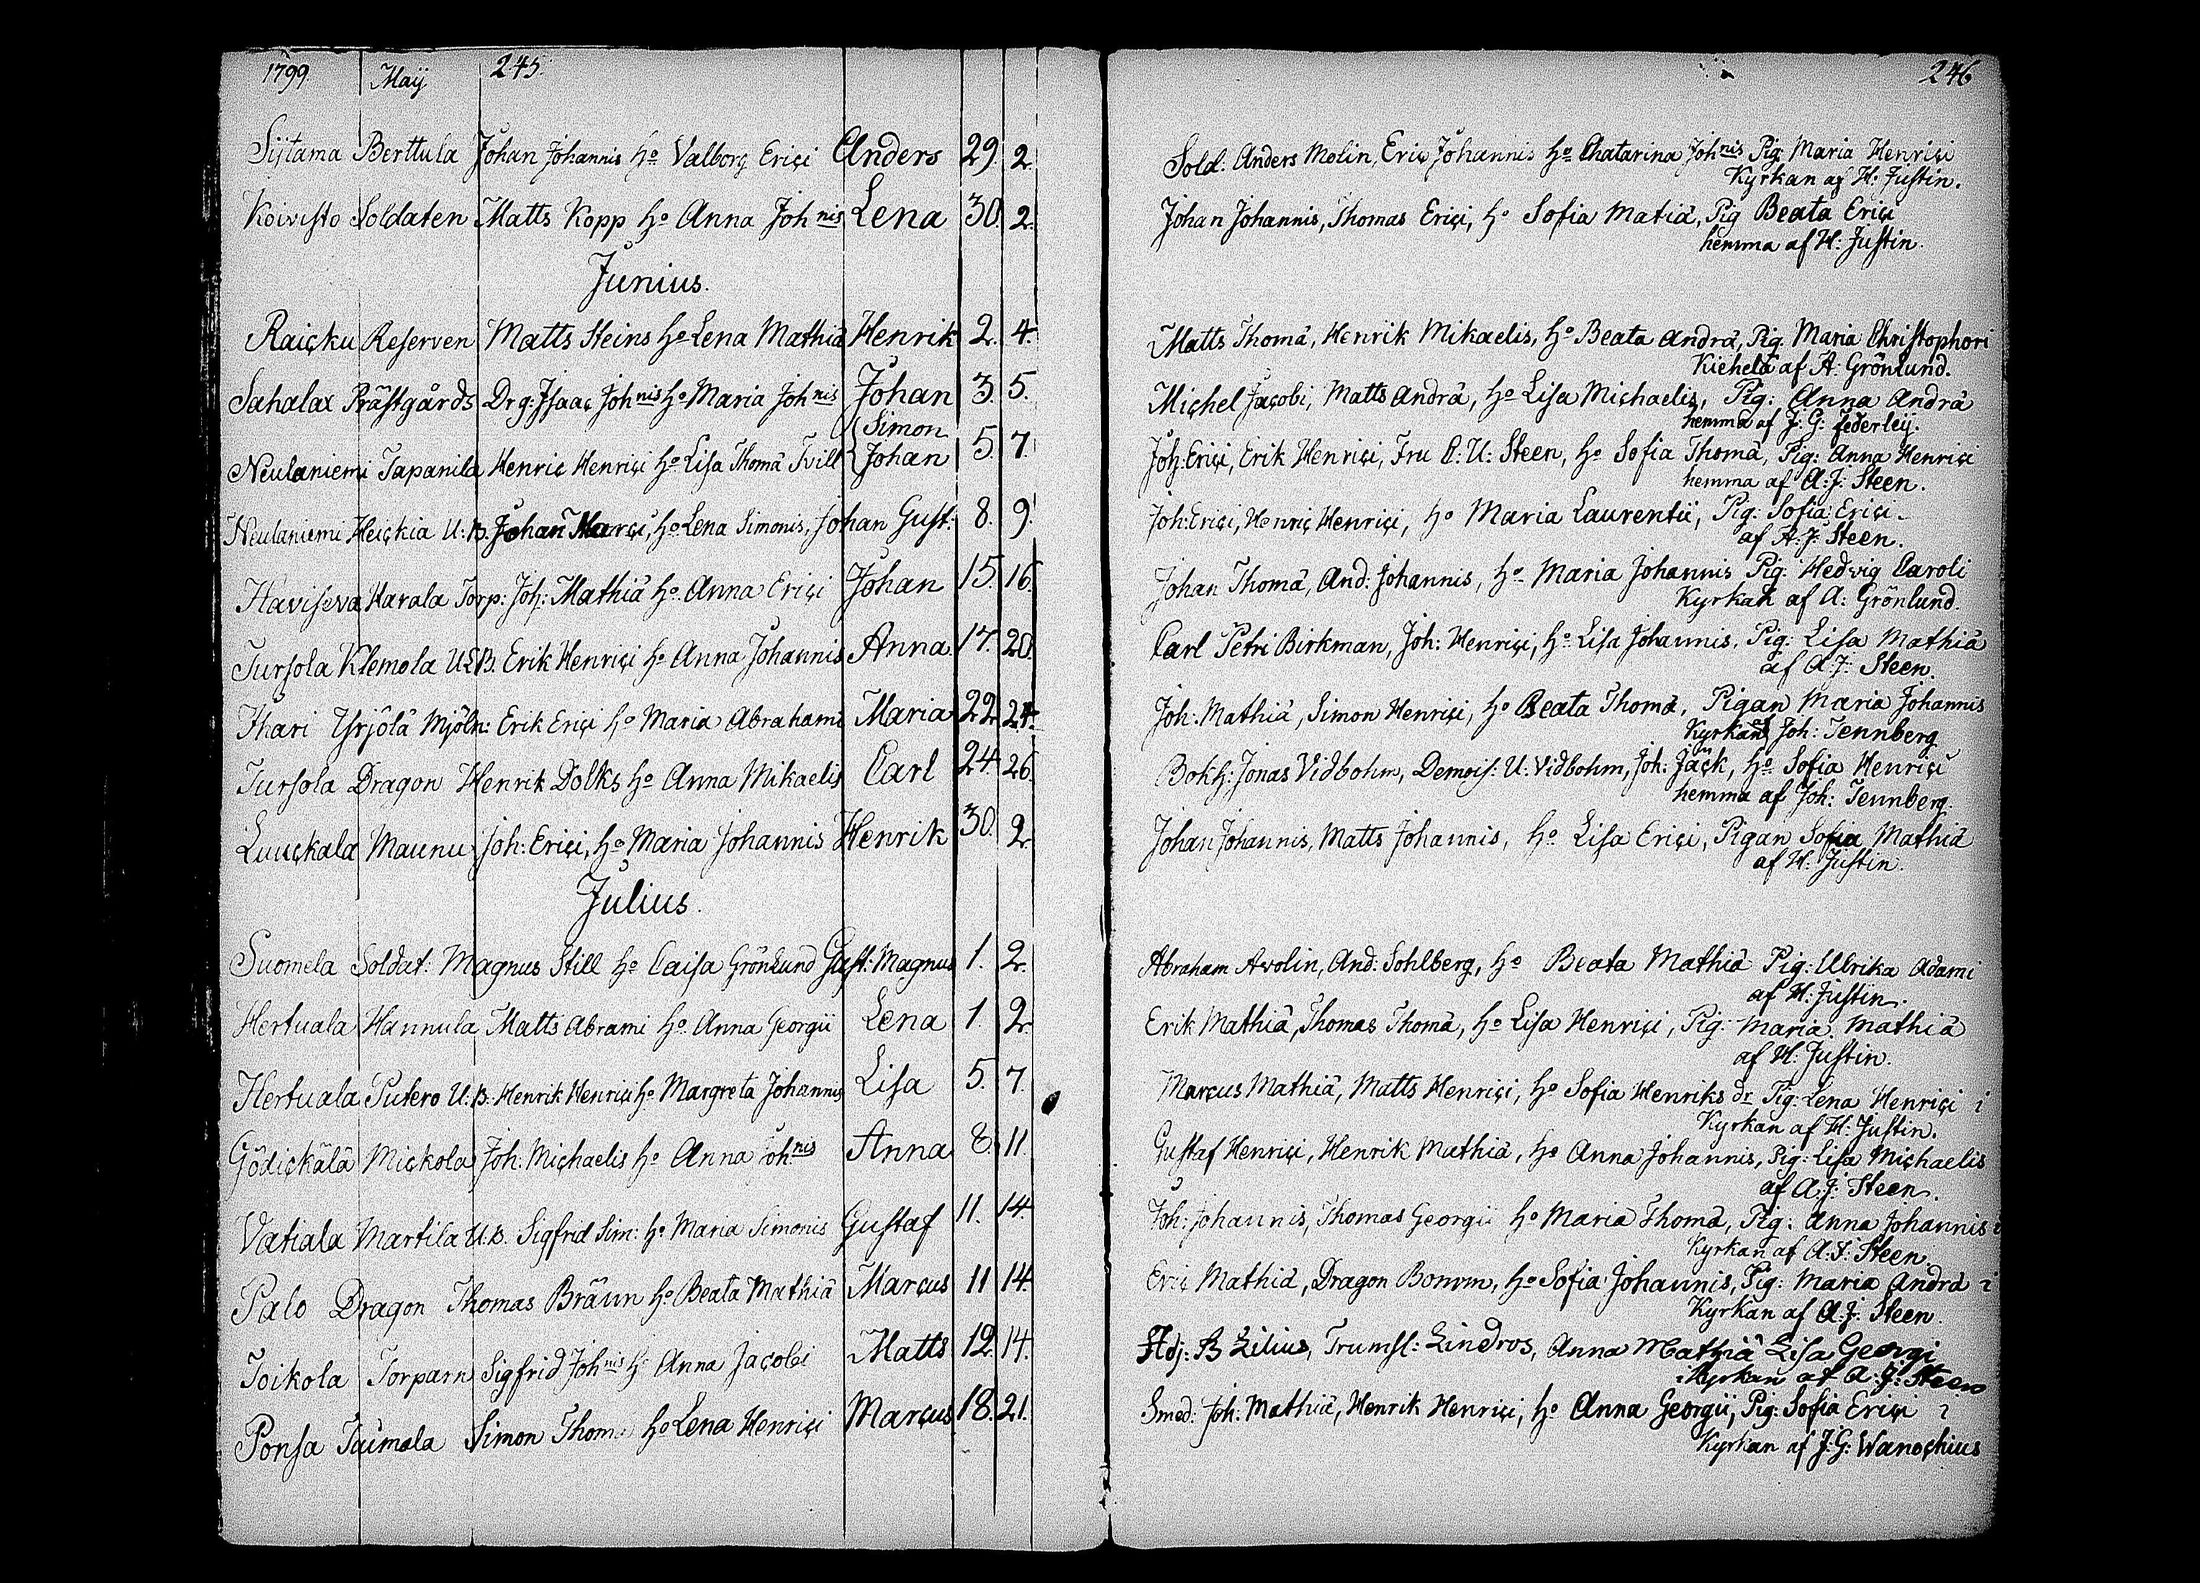 1799. Maij 245.
Sijtama Berttula Johan Johannis ho Valborg Eriçi Anders 29. 2.
Koivisto Soldaten Matts Kopp ho Anna Johnis Lena 30. 2.
Junius.
Raiçku Reserven Matts Steins ho Lena Mathiä Henrik 2. 4.
Sahalax Prästgårds Drg: Isaaç Johnis ho Maria Johnis Johan 3. 5.
Simon
Neulaniemi Tapanila Henriç Henriçi ho Lisa Thomä Tvill Johan 5. 7.
Neulaniemi Heiçkia U: B. Johan Marçi, ho Lena Simonis, Johan Gust: 8. 9.
Haviseva Harala Torp: Joh: Mathiä ho Anna Eriçi Johan 15. 16.
Tursola Klemola U: B. Erik Henriçi ho Anna Johannis Anna 17. 20.
Ihari Yrjölä Mjöln: Erik Eriçi ho Maria Abrahami Maria 22. 24.
Tursola Dragon Henrik Dolks ho Anna Mikaelis Carl 24. 26.
Luuçkala Maunu Joh: Eriçi, ho Maria Johannis Henrik 30. 2.
Julius.
Suomela Soldat: Magnus Still ho Caisa Grönlund Gust: Magnus 1. 2.
Hertuala Hannula Matts Abrami ho Anna Georgii Lena 1. 2.
Hertuala Putero U: B. Henrik Henriçi ho Margreta Johannis Lisa 5. 7.
Gödiçkälä Miçkola Joh: Miçhaelis ho Anna Johnis Anna 8. 11.
Vatiala Martila U. B. Sigfrid Sim: ho Maria Simonis Gustaf 11. 14.
Palo Dragon Thomas Bräun ho Beata Mathiä Marçus 11 14.
Toikola Torparn Sigfrid Johnis ho Anna Jaçobi Matts 12. 14.
Ponsa Simon ho Lena Henriçi Marçus 18. 21.
246
Sold. Anders Molin, Eriç Johannis ho Chatarina Johnis Pig: Maria Henriçi
Kyrkan af H: Justin.
Johan Johannis, Thomas Eriçi, ho Sofia Matiä, Pig Beata Eriçi
hemma af H: Justin.
Matts Thomä, Henrik Mikaelis, ho Beata Andrä, Pig. Maria Christophori
af A: Grönlund.
Miçhel Jaçobi, Matts Andrä, ho Lisa Miçhaelis, Pig: Anna Andrä
hemma af J: G: Federleij.
Joh: Eriçi, Erik Henriçi, Fru C: U: Steen, ho Sofia Thomä, Pig: Anna Henriçi
hemma af A: J: Steen.
Joh: Eriçi, Henriç Henriçi, ho Maria Laurentii, Pig: Sofia Eriçi.
af A: J: Steen.
Johan Thomä, And: Johannis, ho Maria Johannis Pig: Hedvig Caroli
Kyrkan af A: Grönlund.
Carl Petri Birkman, Joh: Henriçi, ho Lisa Johannis, Pig: Lisa Mathiä
af A: J: Steen.
Joh: Mathiä, Simon Henriçi, ho Beata Thomä, Pigan Maria Johannis
Kyrkan af Joh: Tennberg
Bokh: Jonas Vidbohm, Demois: U: Vidbohm, Joh: Jäçk, ho Sofia Henriçi
hemma af Joh: Tennberg.
Johan Johannis, Matts Johannis, ho Lisa Eriçi, Pigan Sofia Mathiä
af H: Justin.
Abraham Avolin, And: Sohlberg, ho Beata Mathiä Pig: Ulrika Adami
af H: Justin.
Erik Mathiä, Thomas Thomä, ho Lisa Henriçi, Pig: Maria Mathiä
af H: Justin.
Marçus Mathiä, Matts Henriçi, ho Sofia Henriks dr Pig: Lena Henriçi i
Kyrkan af H: Justin.
Gustaf Henriçi, Henrik Mathiä, ho Anna Johannis, Pig: Lisa Miçhaelis
af A: J: Steen.
Joh: Johannis, Thomas Georgii ho Maria Thomä, Pig: Anna Johannis i
Kyrkan af A: J: Steen.
Eriç Mathiä, Dragon Bomm, ho Sofia Johannis, Pig: Maria Andrä i
Kyrkan af A: J: Steen.
Adj: B Lilius, Trumsl: Lindros, Anna Mathiä Lisa Georgi
i Kyrkan af A: J: Steen
Smed: Joh: Mathiä, Henrik Henriçi, ho Anna Georgii, Pig: Sofia Eriçi i
Kyrkan af J: G: Wanoçhius